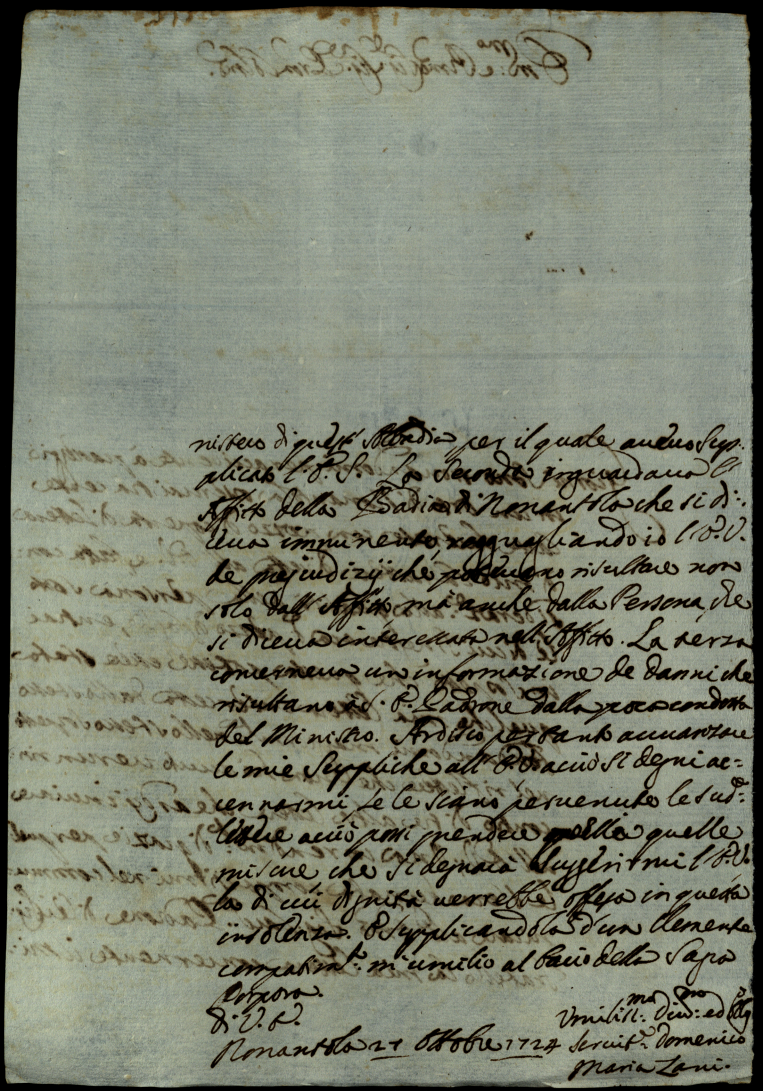 nistero di quest'Abbadia per il quale aueuo Sup=
plicato l'E.S. La Seconda riguardaua l'
Affitto della Badia di Nonantola che si di=
ceua imminente, ragguagliando io l'E.V.
de pregiudizij che poteuano risultare non
solo dall'Affitto, mà anche dalla Persona, che
si diceua interessata nell'Affitto. La terza
concerneua un informazione de danni che
risultano a S. E. Padrone dalla poca condotta
del Ministro. Ardisco pertanto auuanzare
le mie Suppliche all'E.V. acciò si degni ac=
cennarmi se le siano peruenute le sud.e
lettere acciò possi prendere quelle
misure che si degnarà suggerirmi l'E.V.
la di cui dignità uerrebbe offesa in questa
insolenza. E supplicandola d'un Clemente
compatim.to m'umilio al bacio della Sagra
Porpora.
di V. E.
Nonantola 27 Ottobre 1724
Vmiliss.mo Diu.mo ed Obb
Seruit.e Domenico
Maria Zani.